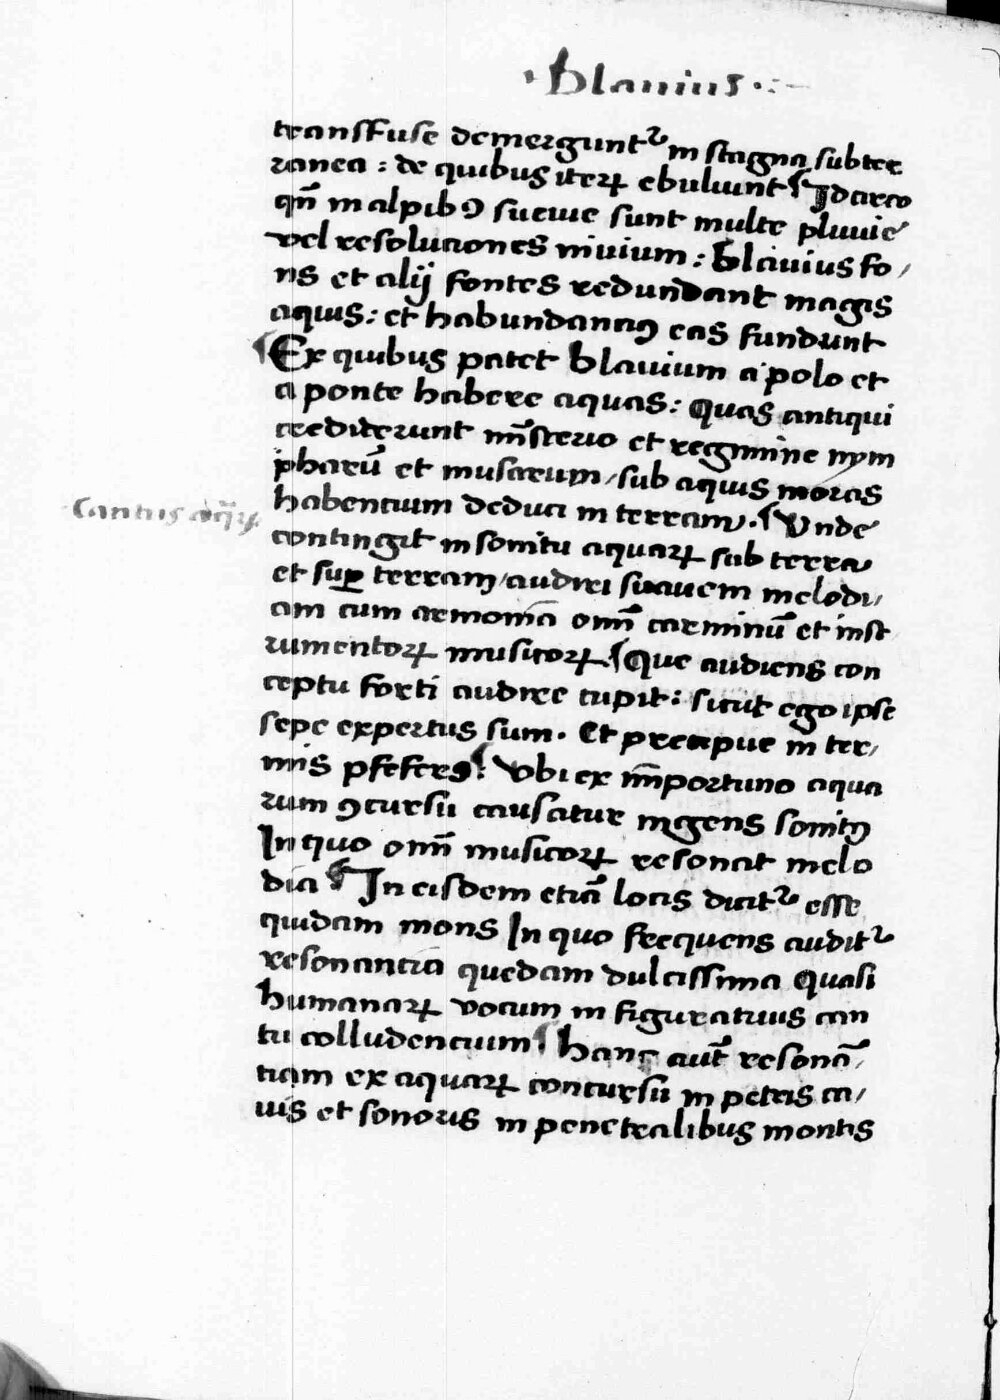 · Blauius ·
transfuse demerguntᷣ in stagna subter
ranea : de quibus iterꝝ ebuliunt ¶ Idcirco
qn̄ in alpibꝰ sueuie sunt multe pluuie
vel resoluciones niuium : blauius fo/
ns et alij fontes redundant magis
aquis : et habundanciꝰ eas fundunt
¶ Ex quibus patet blauium a polo et
a ponte habere aquas : Quas antiqui
crediderunt mīsterio et regimine nym
pharū et musarum / sub aquis moras
habencium deduci in terram · ¶ Vnde
Cantus aq̄rꝝ
contingit in sonitu aquarꝝ sub terra
et suꝑ terram / audiri suauem melodi/
am cum armonia om̄ carminū et inst
rumentorꝝ musicorꝝ ¶ Que audiens con
ceptu forti audire cupit : sicut ego ipse
sepe expertus sum · Et precipue in ter/
mis pfeferꝰ : ¶ Vbi ex īmportuno aqua
rum ꝯcursu causatur ingens sonitꝰ
In quo om̄ musicorꝝ resonat melo
dia ¶ In eisdem etiā locis dicitᷣ esse
quidam mons In quo frequens auditᷣ
resonancia quedam dulcissima Quasi
humanarꝝ vocum in figuratiuis can
tu colludencium ¶ hanc aut̄ resonā/
tiam ex aquarꝝ concursu in petris ca/
uis et sonoris in penetralibus montis